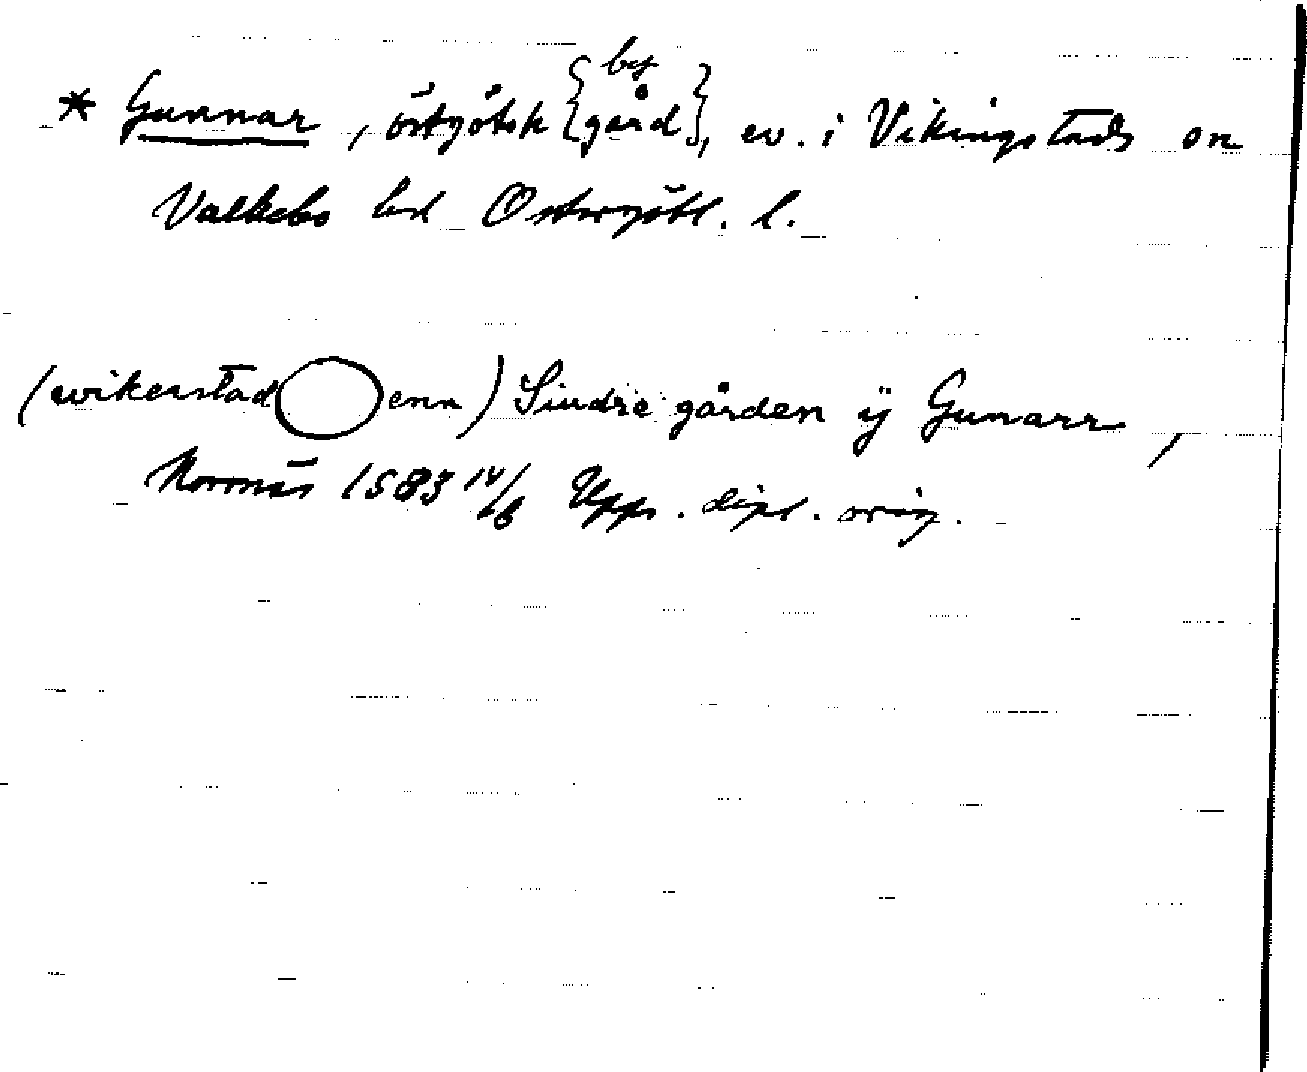 * Gunnar, östgötsk {by gård}, ev. i Vikingstads sn
Valkebo hd Östergötl. l.
(wikerstad enn) Siudre gården ÿ Gunarr,
Norrnäs 1583 IV/6 Upps. dipl. orig.